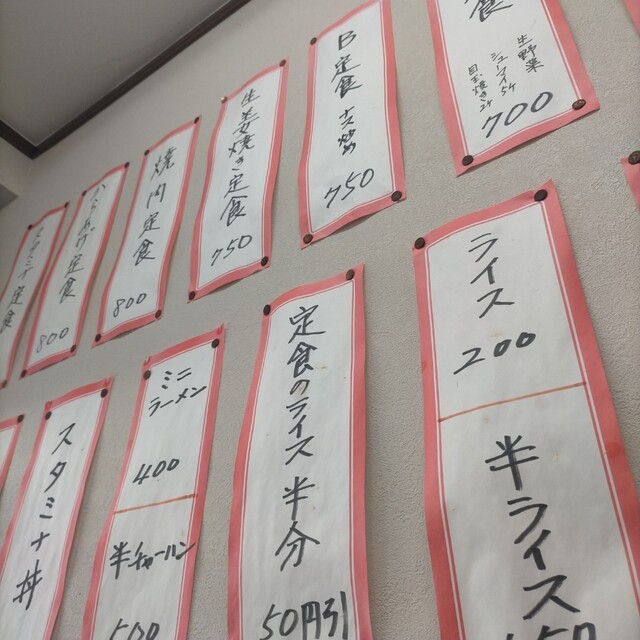 食
生野菜
シューマイ5ケ
目玉焼き2ケ
700
B定食 ナス炒め
750
生姜焼き定食
750
焼肉定食
800
定食
800
定食
ライス
200
半ライス
定食のライス半分
50円引
ミニ
ラーメン
400
半チャーハン
500
スタミナ丼